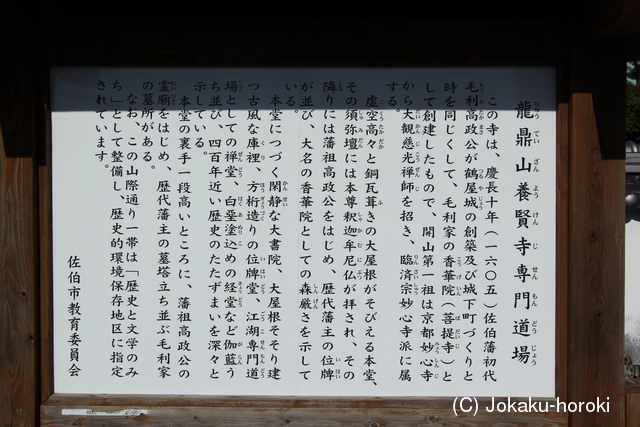 龍鼎山養賢寺専門道場
この寺は、慶長十年（一六〇五）佐伯藩初代
毛利高政公が鶴屋城の創築及び城下町づくりと
時を同じくして、毛利家の香華院（菩提寺）と
して創建したもので、開山第一祖は京都妙心寺
から大観慈光禅師を招き、臨済宗妙心寺派に属
する。
虚空高々と銅瓦葺きの大屋根がそびえる本堂、
その須弥壇には本尊釈迦牟尼仏が拝され、その
隣りには藩祖高政公をはじめ、歴代藩主の位牌
が並び、大名の香華院としての森厳さを示して
いる。
本堂につづく閑静な大書院、大屋根そそり建
つ古風な庫裡、方桁造りの位牌堂、江湖専門道
場としての禅堂、白堊塗込めの経堂など伽藍う
ち並び、四百年近い歴史のたたずまいを深々と
示している。
本堂の裏手一段高いところに、藩祖高政公の
霊廟をはじめ、歴代藩主の墓塔立ち並ぶ毛利家
の墓所がある。
なお、この山際通り一帯は「歴史と文学のみ
ち」として整備し、歴史的環境保存地区に指定
されています。
佐伯市教育委員会
(C) Jokaku-horoki